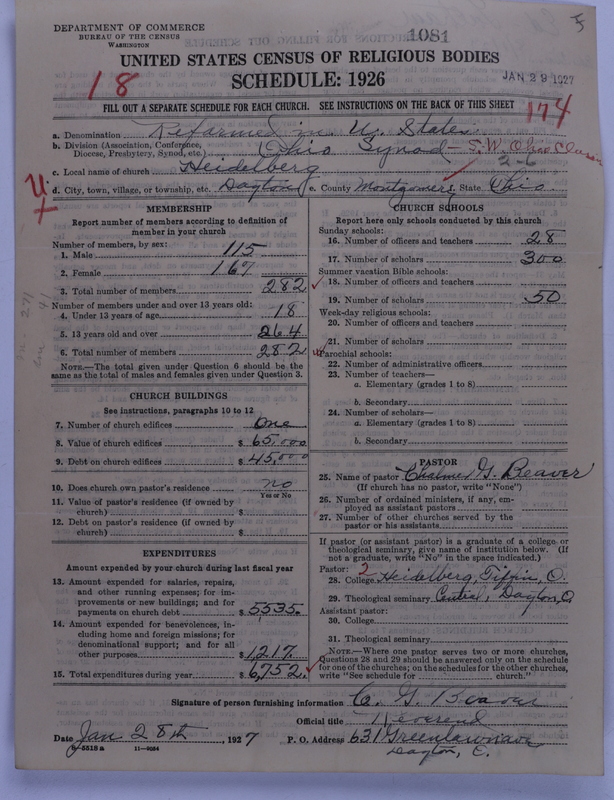 DEPARTMENT OF COMMERCE
BUREAU OF THE CENSUS
WASHINGTON
1081
UNITED STATES CENSUS OF RELIGIOUS BODIES
SCHEDULE: 1926
JAN 29 1927
18
FILL OUT A SEPARATE SCHEDULE FOR EACH CHURCH. SEE INSTRUCTIONS ON THE BACK OF THIS SHEET
174
a. Denomination Reformed in U. States
b. Division (Association, Conference, Diocese, Presbytery, Synod, etc.) Ohio Synod - S.W. Ohio Classis
2-6
c. Local name of church Heidelberg
d. City, town, village, or township, etc. Dayton e. County Montgomery State Ohio
MEMBERSHIP
Report number of members according to definition of
member in your church
Number of members, by sex:
1. Male 115
2. Female 167
3. Total number of members 282
Number of members under and over 13 years old:
4. Under 13 years of age 18
5. 13 years old and over 264
6. Total number of members 282
NOTE.—The total given under Question 6 should be
same as the total of males and females given under Question 3.
CHURCH BUILDINGS
See instructions, paragraphs 10 to 12
7. Number of church edifices One
8. Value of church edifices $ 65,000
9. Debt on church edifices $ 45,000
10. Does church own pastor's residence no
Yes or No
11. Value of pastor's residence (if owned by
church) $
12. Debt on pastor's residence (if owned by
church) $
EXPENDITURES
Amount expended by your church during last fiscal year
13. Amount expended for salaries, repairs,
and other running expenses; for im-
provements or new buildings; and for
payments on church debt $ 5535.
14. Amount expended for benevolences, in-
cluding home and foreign missions; for
denominational support; and for all
other purposes $ 1,217.
15. Total expenditures during year $ 6,752.
CHURCH SCHOOLS
Report here only schools conducted by this church
Sunday schools:
16. Number of officers and teachers 28
17. Number of scholars 300
Summer vacation Bible schools:
18. Number of officers and teachers
19. Number of scholars 50
Week-day religious schools:
20. Number of officers and teachers
21. Number of scholars
Parochial schools:
22. Number of administrative officers
23. Number of teachers—
a. Elementary (grades 1 to 8)
b. Secondary
24. Number of scholars—
a. Elementary (grades 1 to 8)
b. Secondary
PASTOR
25. Name of pastor Chalmer G. Beaver
(If church has no pastor, write "None")
26. Number of ordained ministers, if any, em-
ployed as assistant pastors
27. Number of other churches served by the
pastor or his assistants
If pastor (or assistant pastor) is a graduate of a college or
theological seminary, give name of institution below. (If
not a graduate, write "No" in the space indicated.)
Pastor: 2
28. College Heidelberg, Tiffin, O.
29. Theological seminary Central, Dayton, O.
Assistant pastor:
30. College
31. Theological seminary
NOTE.—Where one pastor serves two or more churches,
Questions 28 and 29 should be answered only on the schedule
for one of the churches; on the schedules for the other churches,
write "See schedule for church."
Signature of person furnishing information C. G. Beaver
Official title Reverend
Date Jan 28th, 1927 P. O. Address 631 Greenlawn ave
Dayton, O.
11—9084